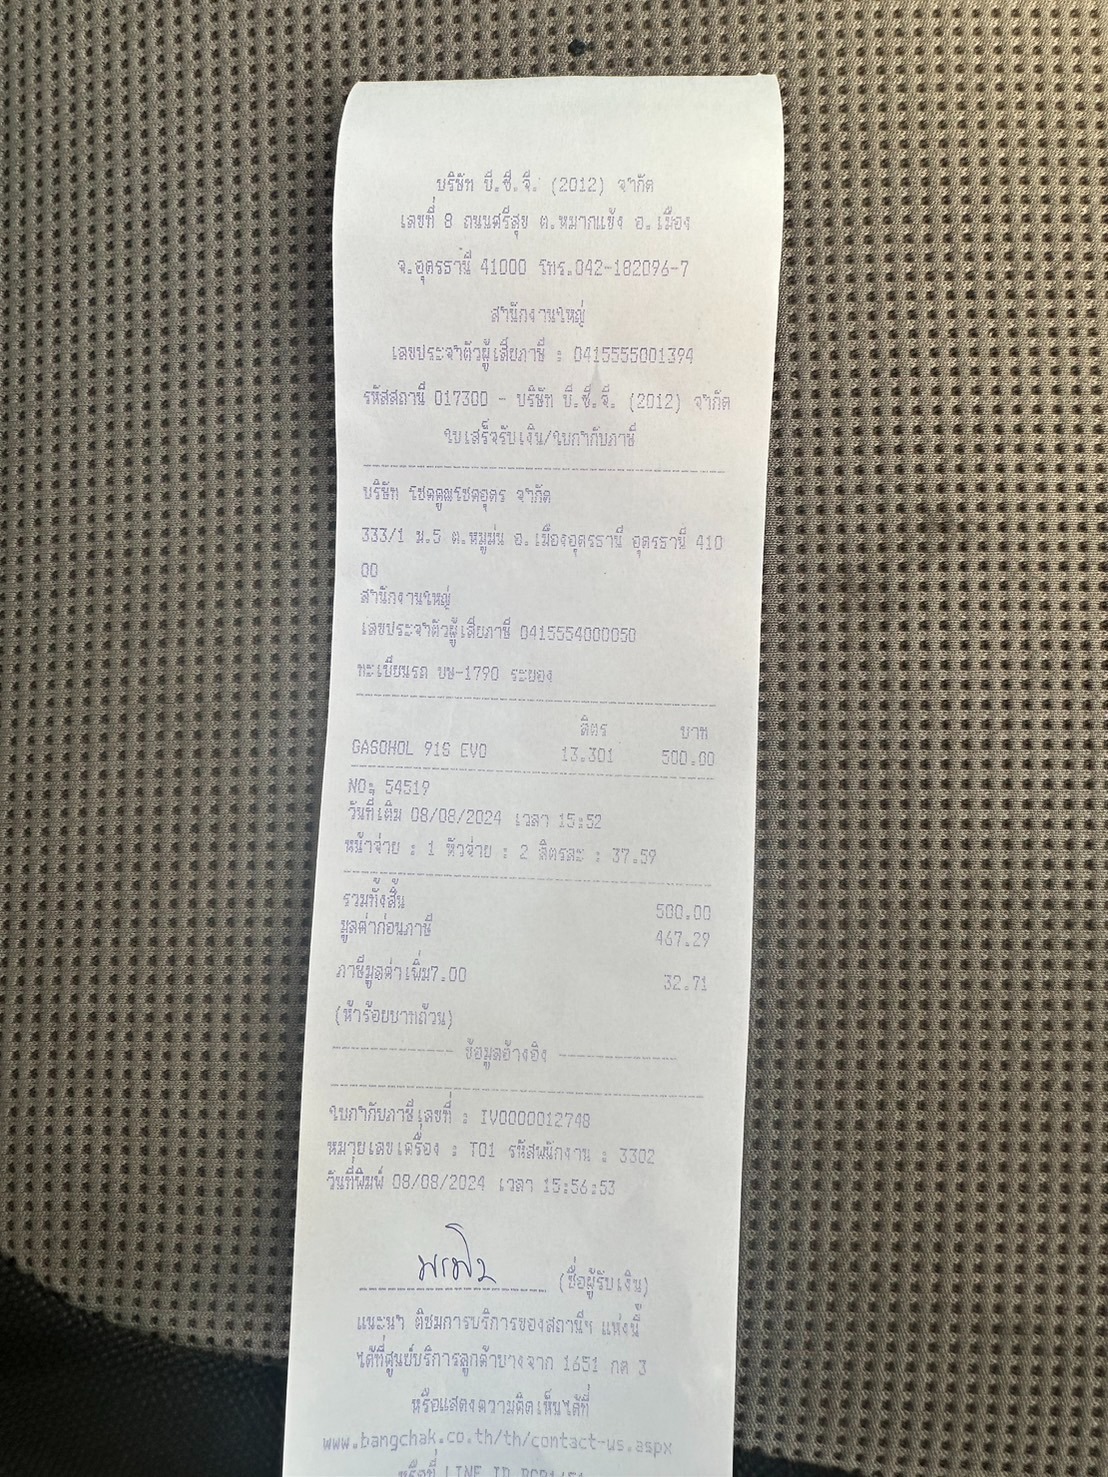 บริษัท บี.ซี.จี. (2012) จำกัด
เลขที่ 8 ถนนศรีสุข ต.หมากแข้ง อ.เมือง
จ.อุดรธานี 41000 โทร.042-182096-7
สำนักงานใหญ่
เลขประจำตัวผู้เสียภาษี : 0415555001394
รหัสสถานี 017300 - บริษัท บี.ซี.จี. (2012) จำกัด
ใบเสร็จรับเงิน/ใบกำกับภาษี
บริษัท โชคคูณโชคอุดร จำกัด
333/1 ม.5 ต.หมูม่น อ.เมืองอุดรธานี อุดรธานี 410
00
สำนักงานใหญ่
เลขประจำตัวผู้เสียภาษี 0415554000050
ทะเบียนรถ บษ-1790 ระยอง
ลิตร บาท
GASOHOL 91S EVO 13.301 500.00
NO: 54519
วันที่เติม 08/08/2024 เวลา 15:52
หน้าจ่าย : 1 หัวจ่าย : 2 ลิตรละ : 37.59
รวมทั้งสิ้น 500.00
มูลค่าก่อนภาษี 467.29
ภาษีมูลค่าเพิ่ม7.00 32.71
(ห้าร้อยบาทถ้วน)
------------- ข้อมูลอ้างอิง -------------
ใบกำกับภาษีเลขที่ : IV0000012748
หมายเลขเครื่อง : T01 รหัสพนักงาน : 3302
วันที่พิมพ์ 08/08/2024 เวลา 15:56:53
(ชื่อผู้รับเงิน)
แนะนำ ติชมการบริการของสถานีฯ แห่งนี้
ได้ที่ศูนย์บริการลูกค้าบางจาก 1651 กด 3
หรือแสดงความคิดเห็นได้ที่
www.bangchak.co.th/th/contact-us.aspx
หรือที่ LINE ID